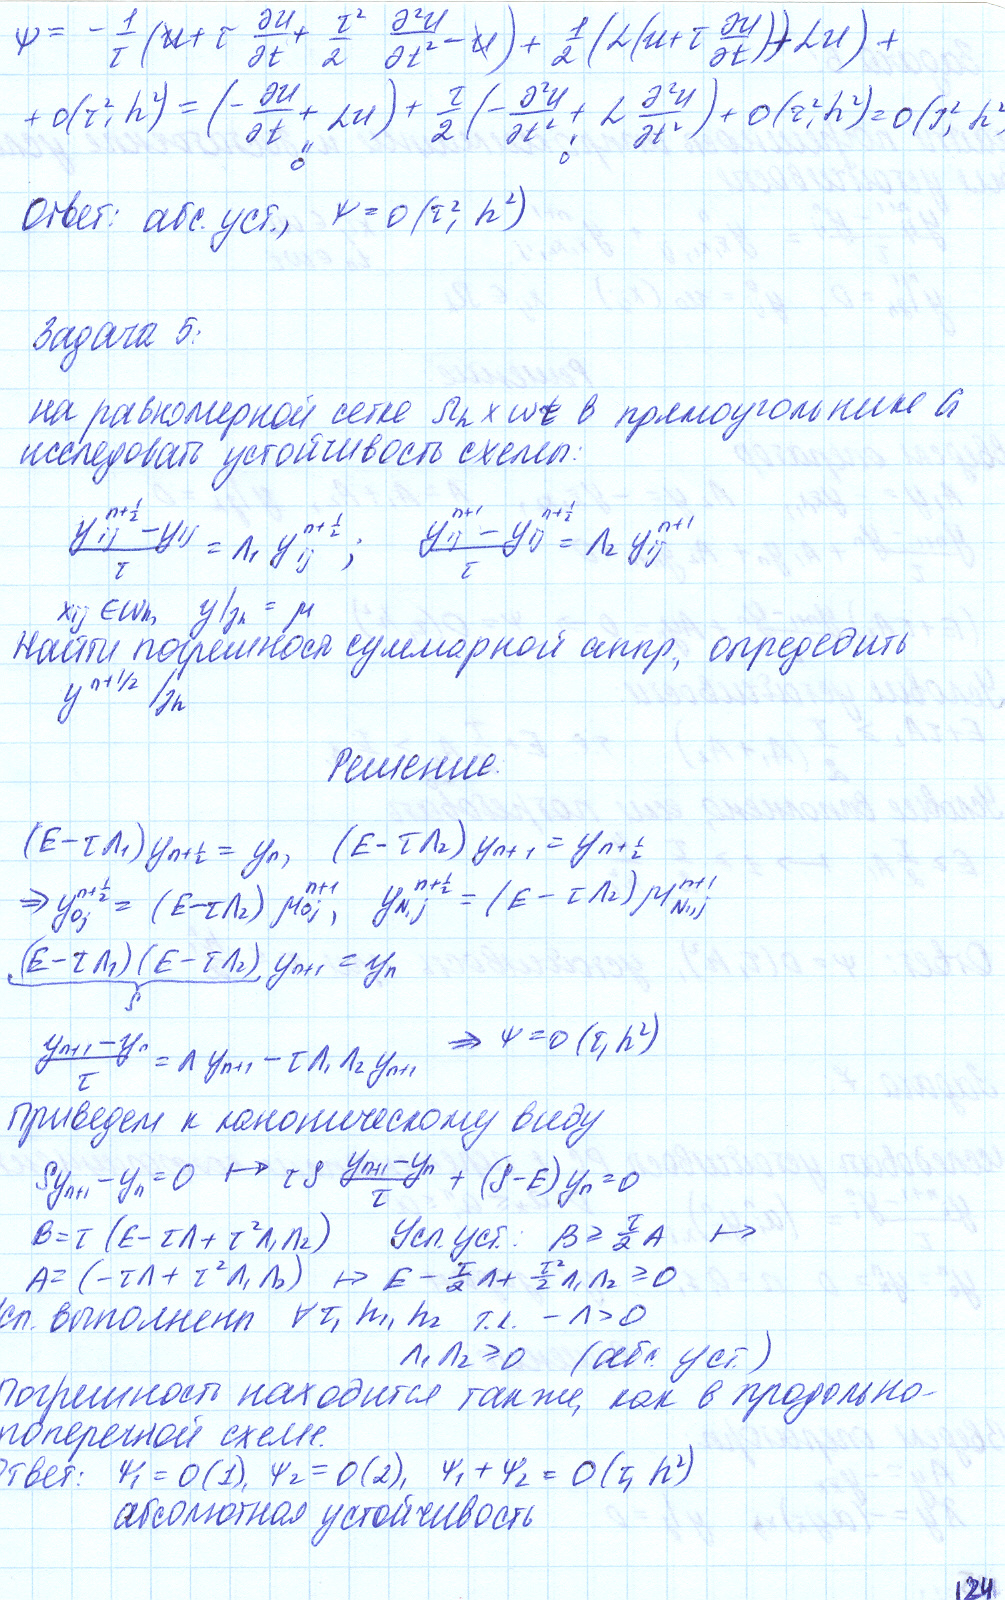 Ψ = - 1/τ (u + τ ∂u/∂t + τ²/2 ∂²u/∂t² - u) + 1/2 (L(u + τ ∂u/∂t) + Lu) +
+ O(τ², h²) = (- ∂u/∂t + Lu) + τ/2 (- ∂²u/∂t² + L ∂²u/∂t²) + O(τ², h²) = O(τ², h²
0 0
Ответ: абс. уст., Ψ = O(τ², h²)
Задача 5:
на равномерной сетке Ωh × ωτ в прямоугольнике G
исследовать устойчивость схемы:
(y_ij^{n+1/2} - y_ij)/τ = Λ₁ y_ij^{n+1/2}; (y_ij^{n+1} - y_ij^{n+1/2})/τ = Λ₂ y_ij^{n+1}
x_ij ∈ ωh, y|γh = μ
Найти погрешность суммарной аппр., определить
y^{n+1/2}|γh
Решение.
(E - τΛ₁) y_{n+1/2} = y_n, (E - τΛ₂) y_{n+1} = y_{n+1/2}
⇒ y_{0j}^{n+1/2} = (E - τΛ₂) μ_{0j}^{n+1}, y_{N₁j}^{n+1/2} = (E - τΛ₂) μ_{N₁,j}^{n+1}
(E - τΛ₁)(E - τΛ₂) y_{n+1} = y_n
S
(y_{n+1} - y_n)/τ = Λ y_{n+1} - τΛ₁Λ₂ y_{n+1} ⇒ Ψ = O(τ, h²)
Приведем к каноническому виду
S y_{n+1} - y_n = 0 ↦ τS (y_{n+1} - y_n)/τ + (S - E) y_n = 0
B = τ (E - τΛ + τ²Λ₁Λ₂) Усл. уст.: B ≥ τ/2 A ↦
A = (-τΛ + τ²Λ₁Λ₂) ↦ E - τ/2 Λ + τ²/2 Λ₁Λ₂ ≥ 0
сл. выполнен ∀ τ, h₁, h₂ т.к. -Λ > 0
Λ₁Λ₂ ≥ 0 (абс. уст.)
Погрешность находится также, как в продольно-
поперечной схеме.
Ответ: Ψ₁ = O(1), Ψ₂ = O(2), Ψ₁ + Ψ₂ = O(τ, h²)
абсолютная устойчивость
124